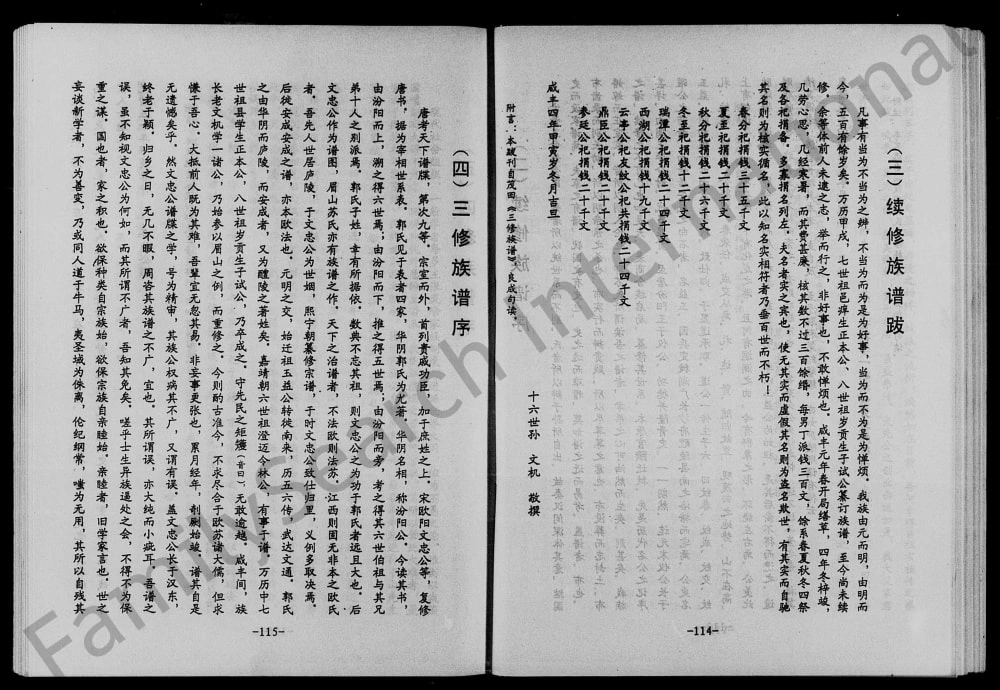 （三）续修族谱跋
凡事有当为不当为之辨，不当为而为是为好事，当为而不为是为惮烦。我族由元而明，由明而
今，五百有馀岁矣。万历甲戌，七世祖邑庠生正本公、八世祖岁贡生子试公纂订族谱，至今尚未续
修，余等体前人未逮之志，举而行之，非好事也，不敢惮烦也。咸丰元年春开局缮草，四年冬梓竣，
几劳心思，几经寒暑，而其费甚廉，核其数不过三百馀缗，每男丁派钱三百文，馀系春夏秋冬四祭
及各祀捐者。多寡捐名列左。夫名者实之宾也，使无其实而虚假其名则为盗名欺世，有其实而自驰
其名则为核实循名，此以知名实相符者乃垂百世而不朽！
春分祀捐钱三十五千文
夏至祀捐钱二十千文
秋分祀捐钱二十六千文
冬至祀捐钱二十千文
瑞潭公祀捐钱二十四千文
西湖公祀捐钱十九千文
云亭公祀友蚊公祀共捐钱二十四千文
鼎臣公祀捐钱二十千文
参廷公祀捐钱二十千文
十六世孙　文机　敬撰
咸丰四年甲寅岁冬月吉旦
附言：本跋刊自茂田《三修族谱》，良成句读。
-114-
（四）三修族谱序
唐考天下谱牒，第次九等。宗室而外，首列贵戚功臣，加于庶姓之上。宋欧阳文忠公等，复修
唐书，据为宰相世系表。郭氏见于表者四家，华阴郭氏为尤著。华阴名相，称汾阳公。今读其书，
由汾阳而上，溯之得六世焉；由汾阳而下，推之得五世焉；由汾阳而旁，考之得其六世伯祖与其兄
弟十人之别派焉。郭氏子姓，幸有所据依。数典不忘其祖，则文忠公之为功于郭氏者远且大也。后
文忠公作为谱图，眉山苏氏亦有族谱之作。天下之治谱者，不法欧则法苏，江西则固无非本之欧氏
者。吾先人世居庐陵，于文忠公为世姻，熙宁朝纂修宗谱，于时文忠公致仕归里，义例多取决焉。
后徙安成安成之谱，亦本欧法也。元明之交，始迁祖玉益公转徙南来，历五六传，武达文通，郭氏
之由华阴而庐陵，而安成者，又为醴陵之著姓矣。嘉靖朝六世祖澄迈令林公，有事于谱。万历中七
世祖县学生正本公，八世祖岁贡生子试公，乃卒成之。守先民之矩矱（音曰）无敢逾越。咸丰间，族
长老文机学一诸公，乃始参以眉山之例，而重修之。今则酌古准今，不求尽合于欧苏诸大儒，但求
慊于吾心。大抵前人既为其难，吾辈宜无忽其易。非妄事更张也，累月经年，剞劂始竣，谱其自是
无遗憾矣乎。然文忠公谱牒之学，号为精审，其族公权病其不广，又谓有误。盖文忠公长于汉东，
终老于颍，归乡之日，无几不暇，周咨其族谱之不广，宜也。其所谓误，亦大纯而小疵耳，吾谱之
误，虽不知视文忠公为何如，而其所谓不广者，吾知其免矣。嗟乎士生异族逼处之会，不得不为保
重之谋。国也者，家之积也。欲保种类自宗族始，欲保宗族自亲睦始。亲睦者，旧学家言也。世之
妄谈新学者，不为善变，乃或同人道于牛马，夷圣域为侏离，伦纪纲常，嗤为无用，其所以自残其
-115-
FamilySearch International